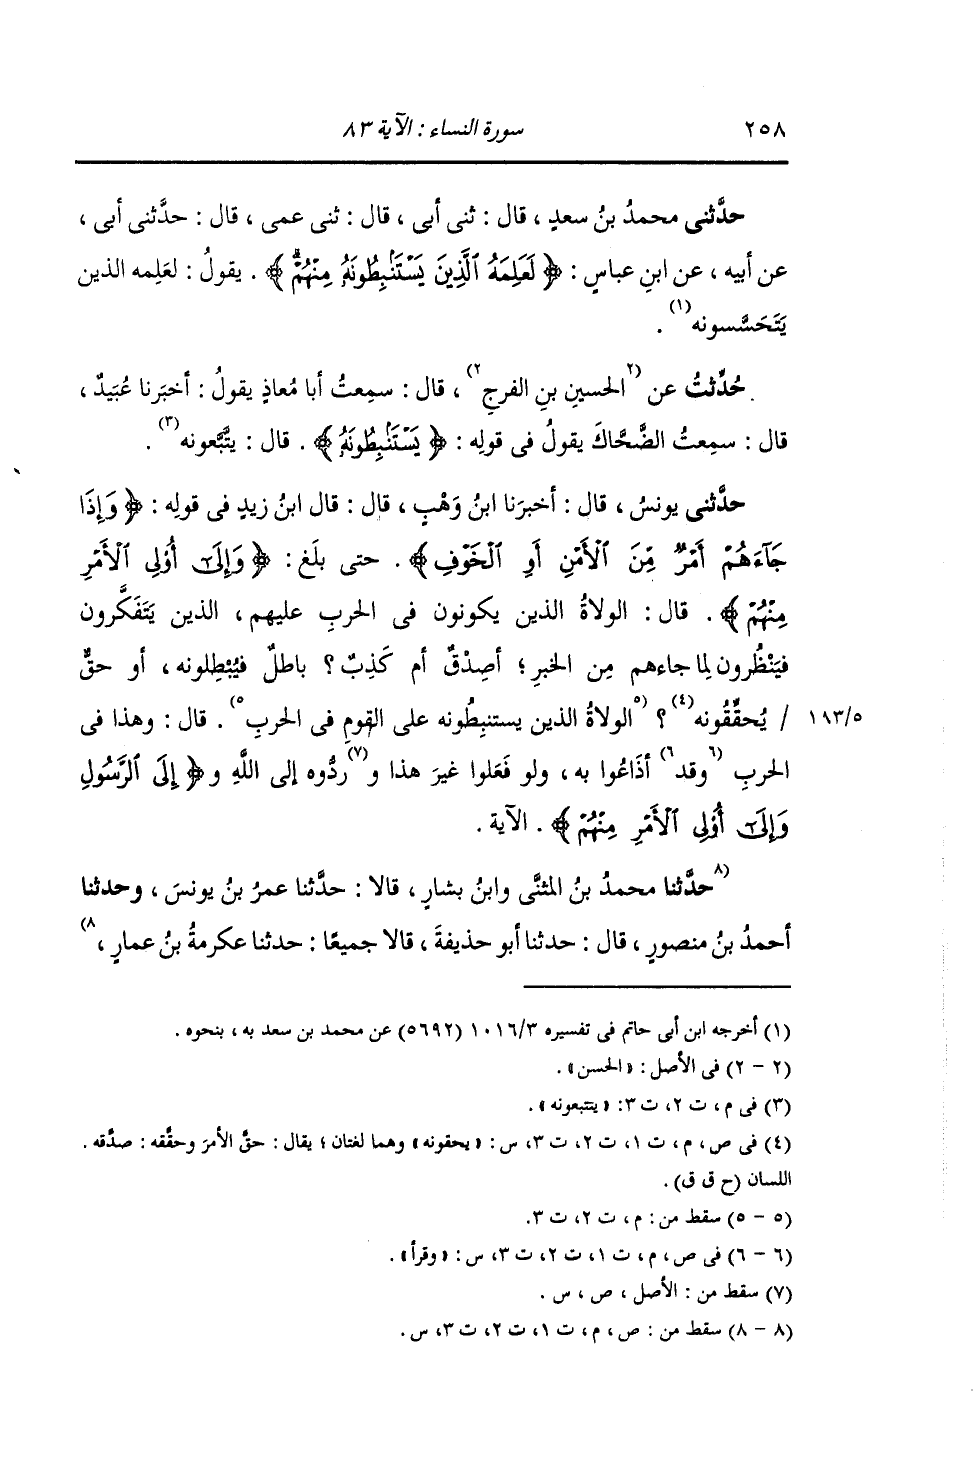 ٢٥٨ سورة النساء : الآية ٨٣
حدَّثنى محمدُ بنُ سعدٍ ، قال : ثنى أبى ، قال : ثنى عمى ، قال : حدَّثنى أبى ،
عن أبيه ، عن ابنِ عباسٍ : ﴿ لَعَلِمَهُ ٱلَّذِينَ يَسْتَنۢبِطُونَهُۥ مِنْهُمْۗ ﴾ . يقولُ : لعَلِمه الذين
يَتَحَسَّسونه(١) .
حُدِّثتُ عن (٢الحسينِ بنِ الفرجِ٢) ، قال : سمِعتُ أبا مُعاذٍ يقولُ : أخبَرنا عُبَيدٌ ،
قال : سمِعتُ الضَّحَّاكَ يقولُ فى قولِه : ﴿ يَسْتَنۢبِطُونَهُۥ ﴾ . قال : يتَّبَّعونه(٣) .
حدَّثنى يونسُ ، قال : أخبرَنا ابنُ وَهْبٍ ، قال : قال ابنُ زيدٍ فى قولِه : ﴿ وَإِذَا
جَآءَهُمْ أَمْرٌ مِّنَ ٱلْأَمْنِ أَوِ ٱلْخَوْفِ ﴾ . حتى بلَغ : ﴿ وَإِلَىٰٓ أُوْلِى ٱلْأَمْرِ
مِنْهُمْ ﴾ . قال : الولاةُ الذين يكونون فى الحربِ عليهم ، الذين يَتَفَكَّرون
فيَنْظُرون لما جاءهم مِن الخبرِ ؛ أصِدْقٌ أم كَذِبٌ ؟ باطلٌ فيُبْطِلونه ، أو حقٌّ
١٨٣/٥ / يُحقِّقُونه(٤) ؟ (٥الولاةُ الذين يستنبِطُونه على القومِ فى الحربِ٥) . قال : وهذا فى
الحربِ (٦وقد٦) أذَاعُوا به ، ولو فَعَلوا غيرَ هذا و(٧)ردُّوه إلى اللَّهِ و﴿ إِلَى ٱلرَّسُولِ
وَإِلَىٰٓ أُوْلِى ٱلْأَمْرِ مِنْهُمْ ﴾ . الآية .
(٨حدَّثنا محمدُ بنُ المثنَّى وابنُ بشارٍ ، قالا : حدَّثنا عمرُ بنُ يونسَ ، وحدثنا
أحمدُ بنُ منصورٍ ، قال : حدثنا أبو حذيفةَ ، قالا جميعًا : حدثنا عكرمةُ بنُ عمارٍ ،٨)
(١) أخرجه ابن أبى حاتم فى تفسيره ١٠١٦/٣ (٥٦٩٢) عن محمد بن سعد به ، بنحوه .
(٢ - ٢) فى الأصل : «الحسن» .
(٣) فى م ، ت ٢، ت ٣: «يتتبعونه» .
(٤) فى ص ، م ، ت ١، ت ٢، ت ٣، س : «يحقونه» وهما لغتان ؛ يقال : حقَّ الأمرَ وحقَّقه : صدَّقه .
اللسان (ح ق ق) .
(٥ - ٥) سقط من : م ، ت ٢، ت ٣.
(٦ - ٦) فى ص ، م ، ت ١، ت ٢، ت ٣، س : «وقرأ» .
(٧) سقط من : الأصل ، ص ، س .
(٨ - ٨) سقط من : ص ، م ، ت ١، ت ٢، ت ٣، س .